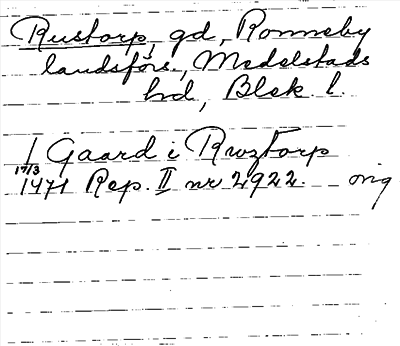 Rustorp, gd, Ronneby
landsförs., Medelstads
hd, Blek. l.
1 Gaard i Rwztorp
17/3
1471 Rep. II nr 2922. orig